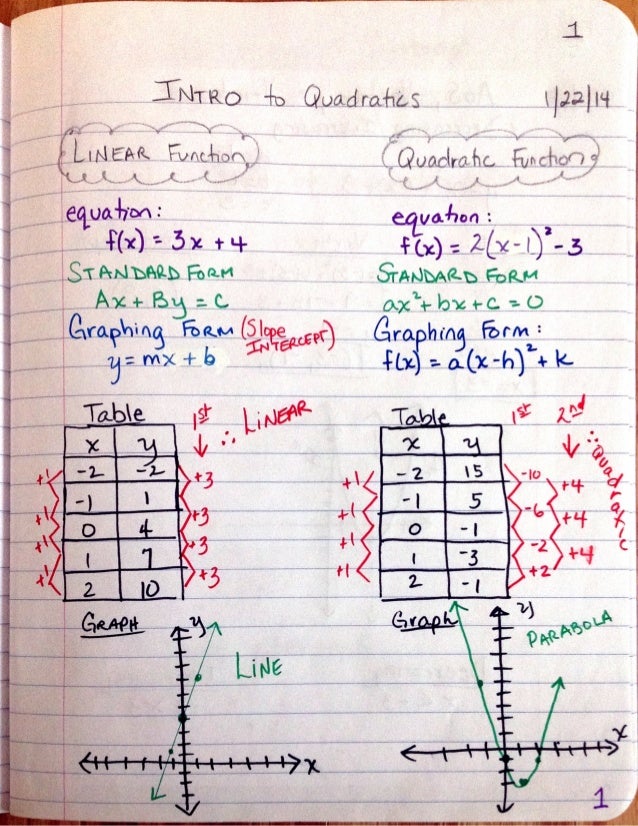 1
INTRO to Quadratics 1/22/14
LINEAR Function
equation:
f(x) = 3x + 4
STANDARD FORM
Ax + By = C
Graphing FORM (Slope INTERCEPT)
y = mx + b
Table 1st ∴ LINEAR
x y
-2 -2
-1 1
0 4
1 7
2 10
+1 +3
+1 +3
+1 +3
+1 +3
GRAPH
y
LINE
x
Quadratic Function
equation:
f(x) = 2(x-1)² - 3
STANDARD FORM
ax² + bx + c = 0
Graphing Form:
f(x) = a(x-h)² + k
Table 1st 2nd ∴ Quadratic
x y
-2 15
-1 5
0 -1
1 -3
2 -1
+1 -10 +4
+1 -6 +4
+1 -2 +4
+1 +2
Graph
y
PARABOLA
x
1